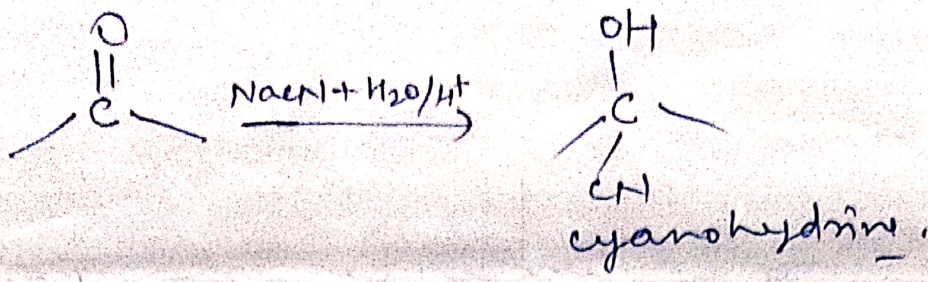 O
OH
||
NaCN + H2O/H+
C
C
CN
cyanohydrine.